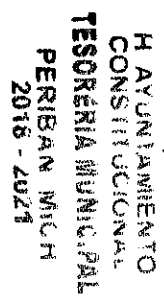 H AYUNTAMIENTO
CONSTITUCIONAL
TESORERIA MUNICIPAL
PERIBAN MICH
2018 - 2021